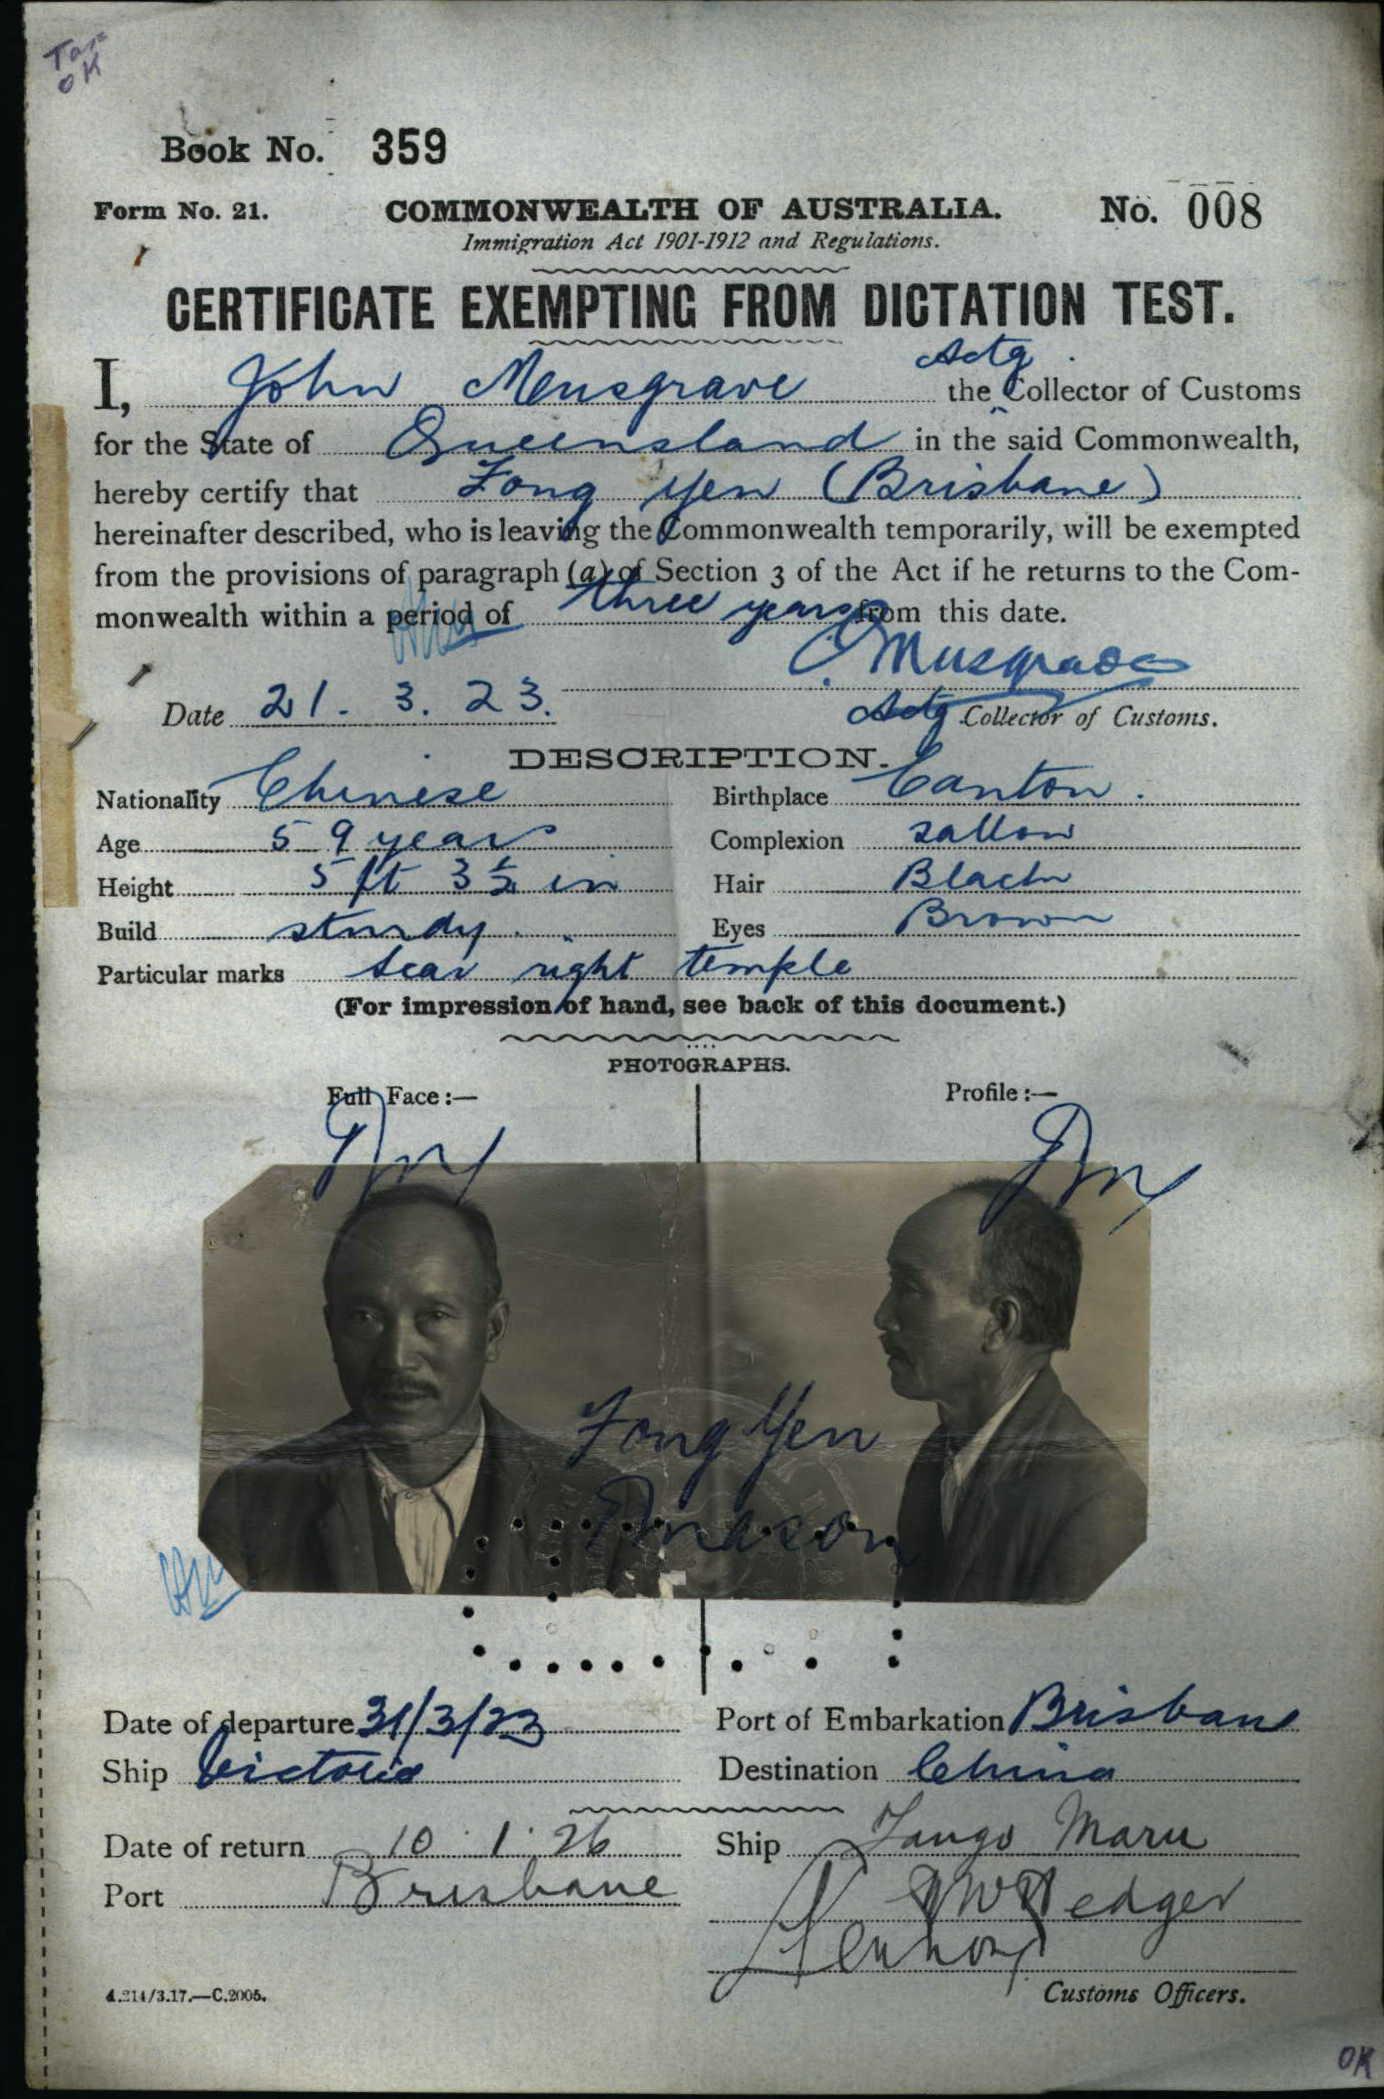 Tax
OK
Book No. 359
Form No. 21. COMMONWEALTH OF AUSTRALIA. No. 008
Immigration Act 1901-1912 and Regulations.
CERTIFICATE EXEMPTING FROM DICTATION TEST.
I, John Musgrave the Actg Collector of Customs
for the State of Queensland in the said Commonwealth,
hereby certify that Fong Yen (Brisbane)
hereinafter described, who is leaving the Commonwealth temporarily, will be exempted
from the provisions of paragraph (a) of Section 3 of the Act if he returns to the Com-
monwealth within a period of three years from this date.
Musgrave
Date 21. 3. 23. Actg Collector of Customs.
DESCRIPTION.
Nationality Chinese Birthplace Canton.
Age 59 years Complexion Sallow
Height 5 ft 3½ in Hair Black
Build sturdy. Eyes Brown
Particular marks Scar right temple
(For impression of hand, see back of this document.)
PHOTOGRAPHS.
Full Face:— Profile:—
Fong Yen
Date of departure 31/3/23 Port of Embarkation Brisbane
Ship Victoria Destination China
Date of return 10.1.26 Ship Tango Maru
Port Brisbane
Customs Officers.
4.214/3.17.—C.2005.
OK